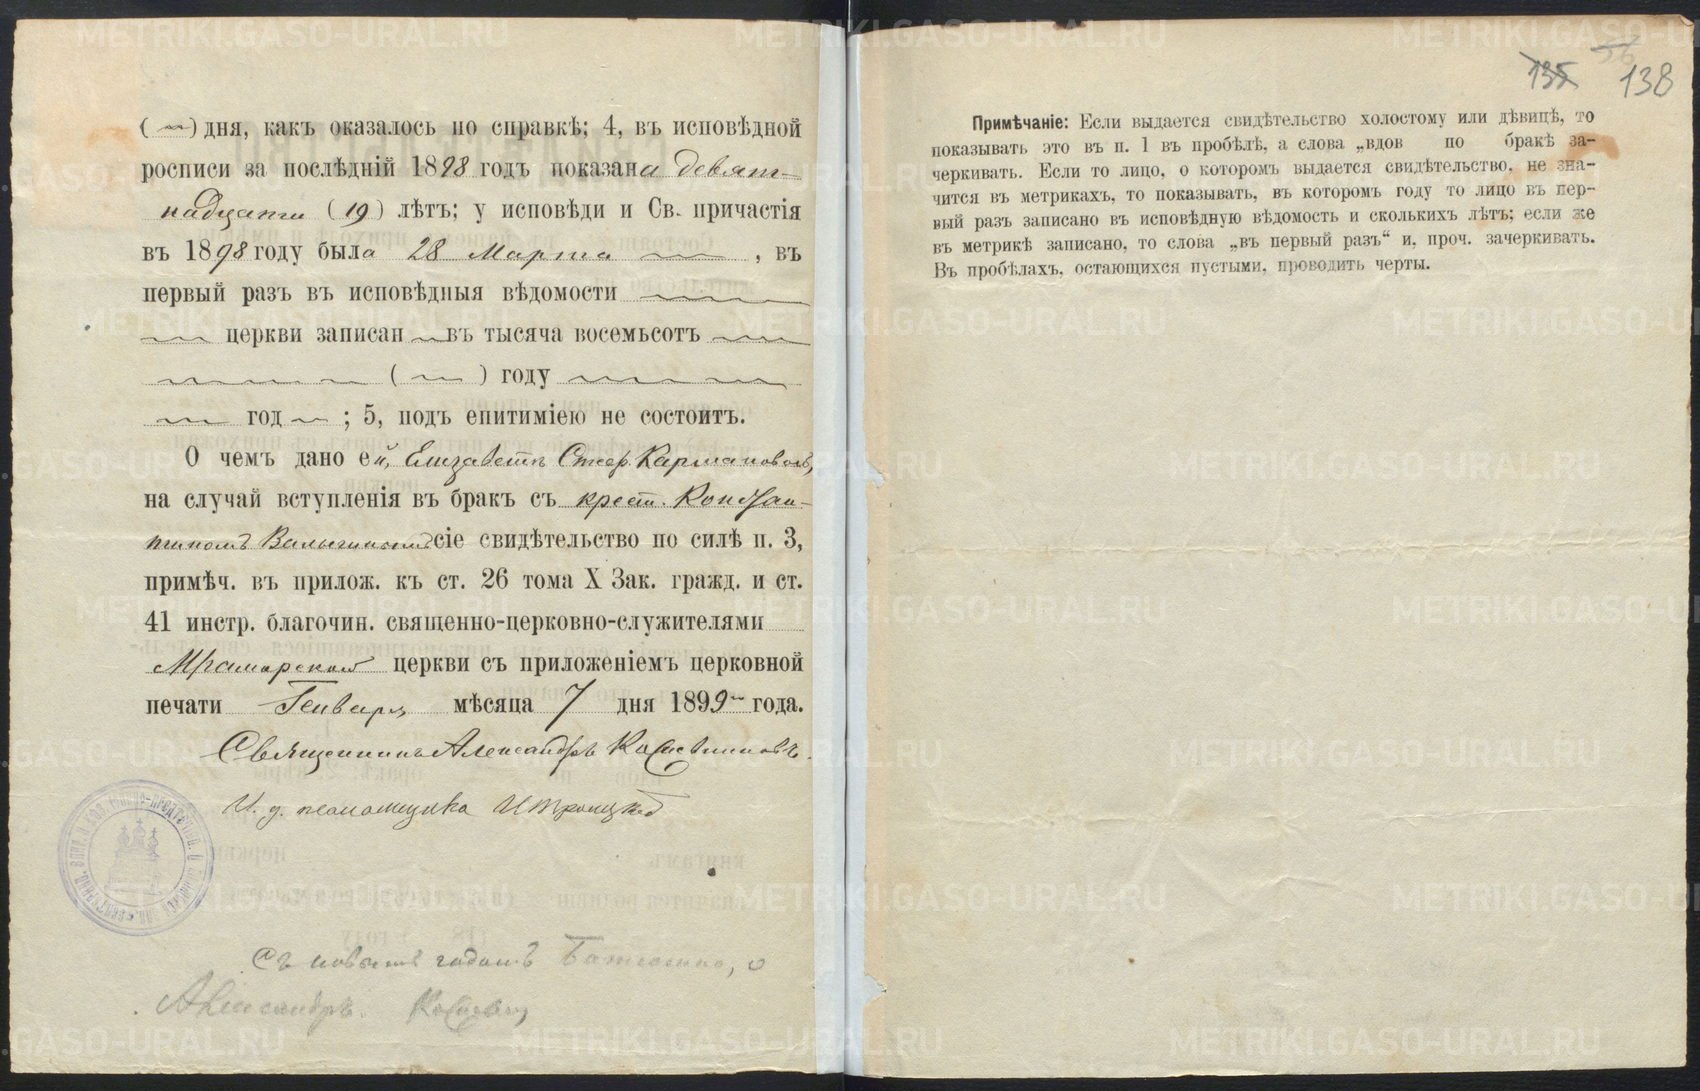 ( ) дня, какъ оказалось по справкѣ; 4, въ исповѣдной
росписи за послѣднiй 1898 годъ показана девят-
надцати (19) лѣтъ; у исповѣди и Св. причастiя
въ 1898 году была 28 Марта , въ
первый разъ въ исповѣдныя вѣдомости
церкви записан въ тысяча восемьсотъ
( ) году
год ; 5, подъ епитимiею не состоитъ.
О чемъ дано ей, Елизаветѣ Стеф. Кармановой,
на случай вступленiя въ бракъ съ крест. Констан-
тиномъ сiе свидѣтельство по силѣ п. 3,
примѣч. въ прилож. къ ст. 26 тома X Зак. гражд. и ст.
41 инстр. благочин. священно-церковно-служителями
Мраморской церкви съ приложенiемъ церковной
печати Генваря мѣсяца 7 дня 1899 года.
Священникъ Александръ
И. д. псаломщика И Троицкiй
Съ новымъ годомъ Батюшка, о
Александръ.
135 138
Примѣчанiе: Если выдается свидѣтельство холостому или дѣвицѣ, то
показывать это въ п. 1 въ пробѣлѣ, а слова „вдов по бракѣ за-
черкивать. Если то лицо, о которомъ выдается свидѣтельство, не зна-
чится въ метрикахъ, то показывать, въ которомъ году то лицо въ пер-
вый разъ записано въ исповѣдную вѣдомость и сколькихъ лѣтъ; если же
въ метрикѣ записано, то слова „въ первый разъ“ и, проч. зачеркивать.
Въ пробѣлахъ, остающихся пустыми, проводить черты.
METRIKI.GASO-URAL.RU